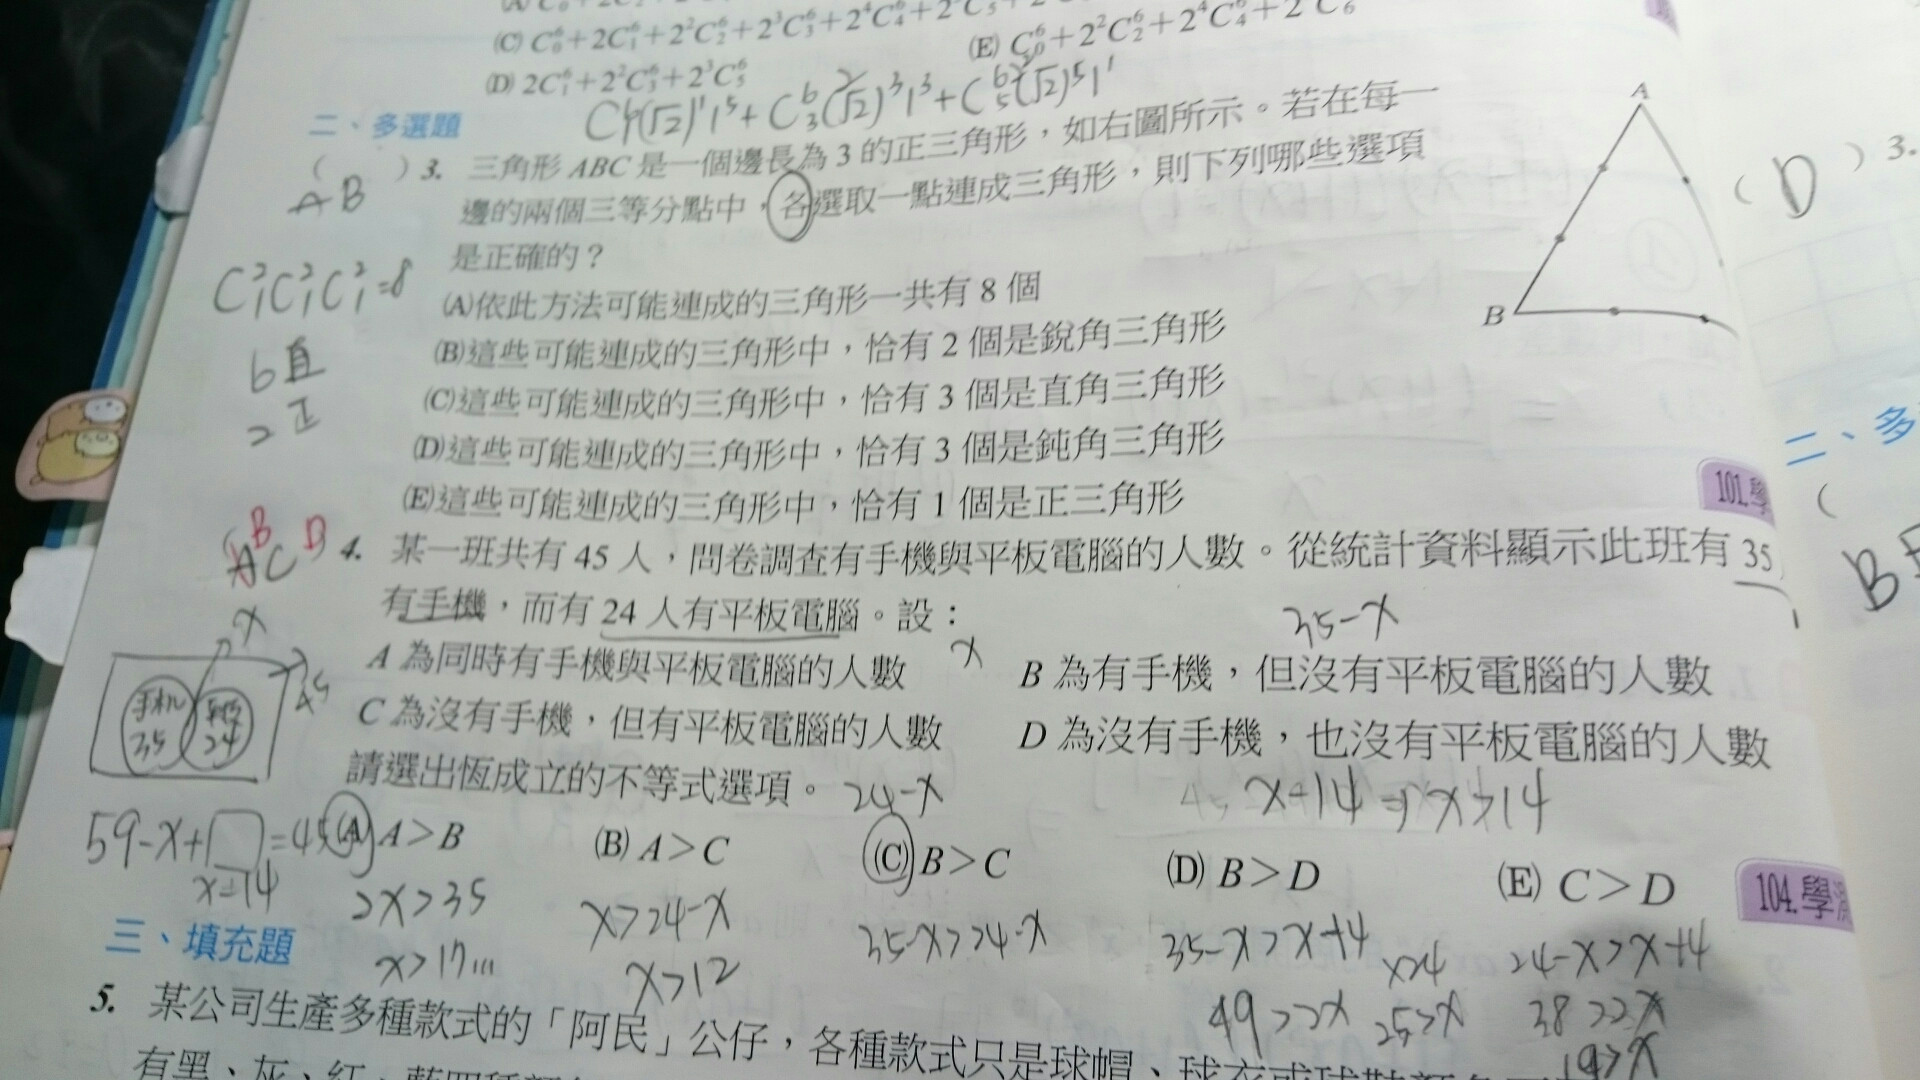 (C) C₀⁶+2C₁⁶+2²C₂⁶+2³C₃⁶+2⁴C₄⁶+2
(E) C₀⁶+2²C₂⁶+2⁴C₄⁶+2 C₆
(D) 2C₁⁶+2²C₃⁶+2³C₅⁶
二、多選題
( )3. 三角形 ABC 是一個邊長為 3 的正三角形，如右圖所示。若在每一
AB
邊的兩個三等分點中，各選取一點連成三角形，則下列哪些選項
是正確的？
A
B
C₁²C₁²C₁²=8
(A)依此方法可能連成的三角形一共有 8 個
6直
(B)這些可能連成的三角形中，恰有 2 個是銳角三角形
2正
(C)這些可能連成的三角形中，恰有 3 個是直角三角形
(D)這些可能連成的三角形中，恰有 3 個是鈍角三角形
(E)這些可能連成的三角形中，恰有 1 個是正三角形
101.學
ABCD
4. 某一班共有 45 人，問卷調查有手機與平板電腦的人數。從統計資料顯示此班有 35
有手機，而有 24 人有平板電腦。設：
35-x
x
A 為同時有手機與平板電腦的人數 x
B 為有手機，但沒有平板電腦的人數
45
手机
35
24
C 為沒有手機，但有平板電腦的人數
D 為沒有手機，也沒有平板電腦的人數
請選出恆成立的不等式選項。 24-x
x-14 ⇒ x>14
59-x+□=45
x-14
(A) A>B
(B) A>C
(C) B>C
(D) B>D
(E) C>D
104.學測
2x>35
x>24-x
35-x>24-x
35-x>x-14
24-x>x-14
x>17...
x>12
49>2x
25>x
38>2x
19>x
三、填充題
5. 某公司生產多種款式的「阿民」公仔，各種款式只是球帽、球衣或球鞋顏色
有黑、灰、紅、藍四種
(D) 3.
二、多
(
B